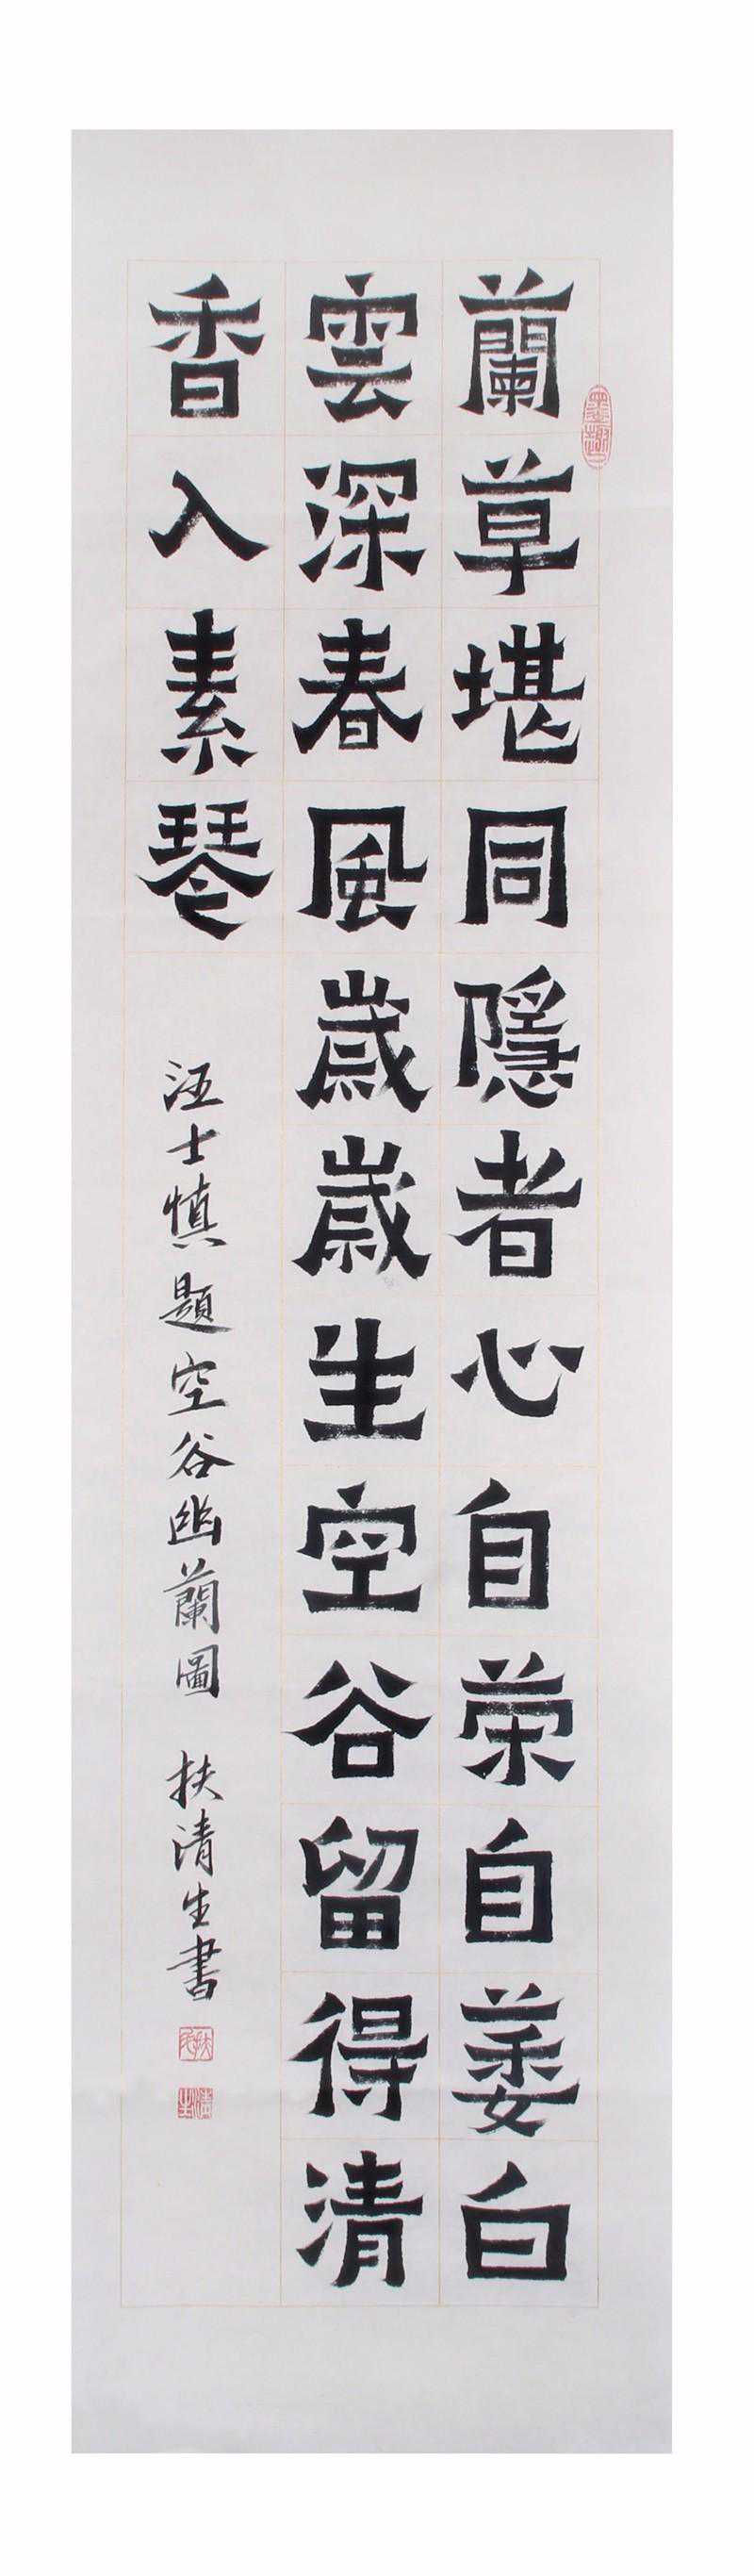 蘭草堪同隱者心自荣自萎白
雲深春風歲歲生空谷留得清
香入素琴
汪士慎題空谷幽蘭圖 扶清生書
墨趣